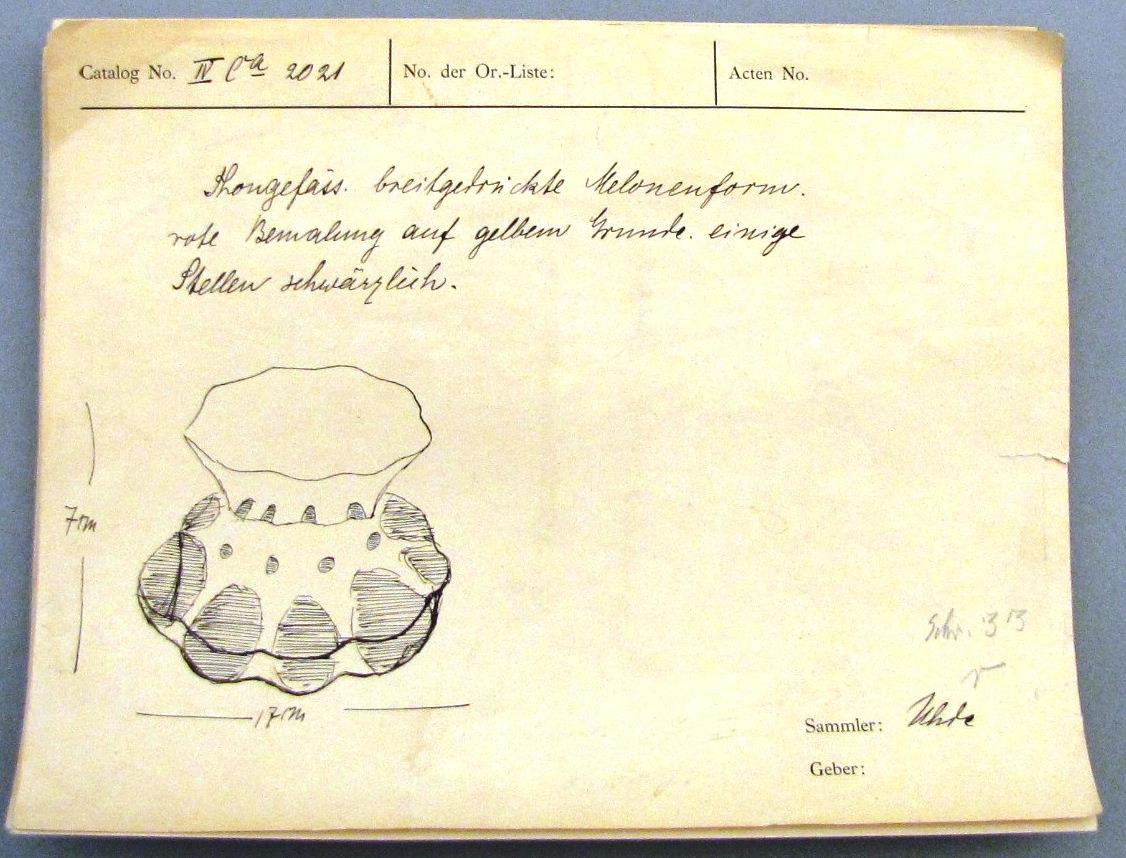 Catalog No. IV Ca 2021 No. der Or.-Liste: Acten No.
Thongefäss. breitgedrückte Melonenform.
rote Bemalung auf gelbem Grunde. einige
Stellen schwärzlich.
7cm
17cm
Schr. 3 B
Sammler: Uhde
Geber: